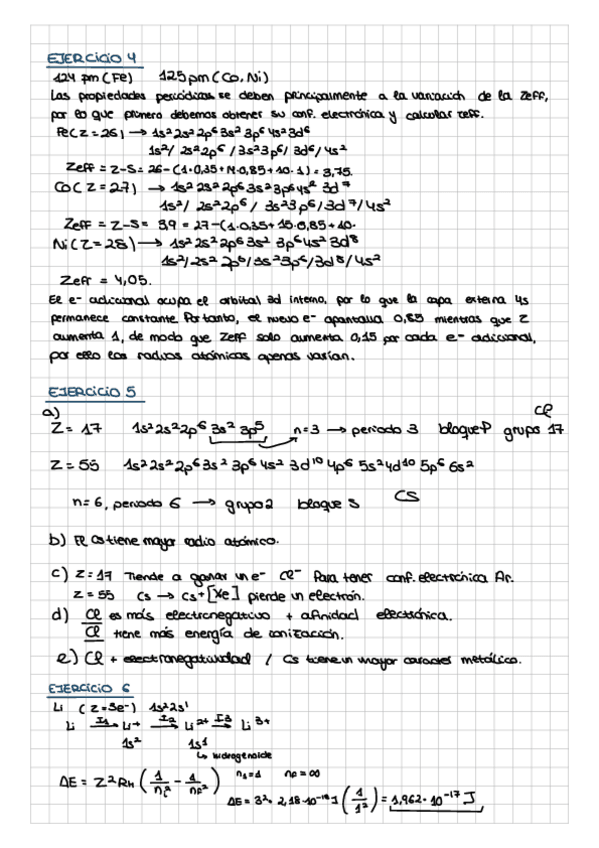 EJERCICIO 4
124 pm (Fe) 125 pm (Co, Ni)
Las propiedades periódicas se deben principalmente a la variación de la Zeff,
por lo que primero debemos obtener su conf. electrónica y calcular zeff.
Fe (Z=26) → 1s² 2s² 2p⁶ 3s² 3p⁶ 4s² 3d⁶
1s² / 2s² 2p⁶ / 3s² 3p⁶ / 3d⁶ / 4s²
Zeff = Z-S = 26 - (1·0,35 + 14·0,85 + 10·1) = 3,75.
Co (Z=27) → 1s² 2s² 2p⁶ 3s² 3p⁶ 4s² 3d⁷
1s² / 2s² 2p⁶ / 3s² 3p⁶ / 3d⁷ / 4s²
Zeff = Z-S = 3,9 = 27 - (1·0,35 + 15·0,85 + 10·
Ni (Z=28) → 1s² 2s² 2p⁶ 3s² 3p⁶ 4s² 3d⁸
1s² / 2s² 2p⁶ / 3s² 3p⁶ / 3d⁸ / 4s²
Zeff = 4,05.
El e⁻ adicional ocupa el orbital 3d interno, por lo que la capa externa 4s
permanece constante. Por tanto, el nuevo e⁻ apantalla 0,85 mientras que Z
aumenta 1, de modo que Zeff solo aumenta 0,15 por cada e⁻ adicional,
por ello los radios atómicos apenas varían.
EJERCICIO 5
a) Cl
Z = 17 1s² 2s² 2p⁶ 3s² 3p⁵ n=3 → periodo 3 bloque P grupo 17
Z = 55 1s² 2s² 2p⁶ 3s² 3p⁶ 4s² 3d¹⁰ 4p⁶ 5s² 4d¹⁰ 5p⁶ 6s²
n=6, periodo 6 → grupo 2 bloque S Cs
b) El Cs tiene mayor radio atómico.
c) Z=17 Tiende a ganar un e⁻ Cl⁻ Para tener conf. electrónica Ar.
Z = 55 Cs → Cs+ [Xe] pierde un electrón.
d) Cl es más electronegativo + afinidad electrónica.
Cl tiene más energía de ionización.
e) Cl + electronegatividad / Cs tiene un mayor caracter metálico.
EJERCICIO 6
Li (Z=3e⁻) 1s² 2s¹
Li I1→ Li+ I2→ Li2+ I3→ Li 3+
1s² 1s¹
↳ hidrogenoide
ΔE = Z² RH (1/ni² - 1/nf²) n1=1 nf=∞
ΔE = 3² · 2,18·10⁻¹⁸ J (1/1²) = 1,962·10⁻¹⁷ J